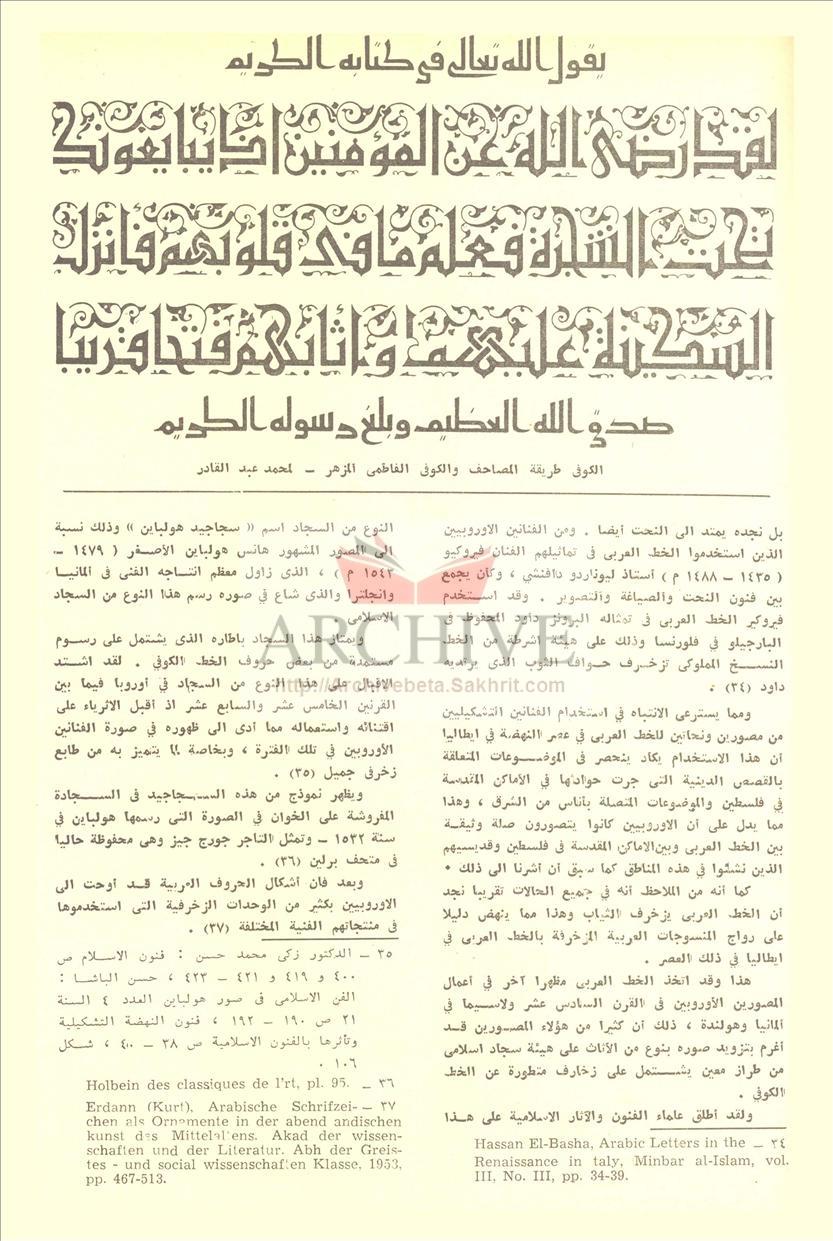 يقول الله تعالى في كتابه الكريم
لقد رضى الله عن المؤمنين اذ يبايعونك
تحت الشجرة فعلم ما فى قلوبهم فأنزل
السكينة عليهم وأثابهم فتحا قريبا
صدق الله العظيم وبلغ رسوله الكريم
الكوفى طريقة المصاحف والكوفى الفاطمى المزهر – لمحمد عبد القادر
بل نجده يمتد الى النحت أيضا . ومن الفنانين الاوروبيين
الذين استخدموا الخط العربى فى تماثيلهم الفنان فيروكيو
( ١٤٣٥ – ١٤٨٨ م ) أستاذ ليوناردو دافنشي ، وكان يجمع
بين فنون النحت والصياغة والتصوير . وقد استخدم
فيروكير الخط العربى فى تمثاله البرونز داود المحفوظ فى
البارجيلو في فلورنسا وذلك على هيئة أشرطة من الخط
النسخ المملوكى تزخرف حواف الثوب الذى يرتديه
داود (٣٤) .
ومما يسترعى الانتباه في استخدام الفنانين التشكيليين
من مصورين ونحاتين للخط العربى فى عصر النهضة في ايطاليا
أن هذا الاستخدام يكاد ينحصر فى الموضوعات المتعلقة
بالقصص الدينية التى جرت حوادثها في الأماكن المقدسة
في فلسطين والموضوعات المتصلة بأناس من الشرق ، وهذا
مما يدل على أن الاوروبيين كانوا يتصورون صلة وثيقة
بين الخط العربى وبين الاماكن المقدسة فى فلسطين وقديسيهم
الذين نشئوا في هذه المناطق كما سبق أن أشرنا الى ذلك .
كما أنه من الملاحظ أنه في جميع الحالات تقريبا نجد
أن الخط العربى يزخرف الثياب وهذا مما ينهض دليلا
على رواج المنسوجات العربية المزخرفة بالخط العربى في
ايطاليا في ذلك العصر .
هذا وقد اتخذ الخط العربى مظهرا آخر في أعمال
المصورين الأوروبين فى القرن السادس عشر ولاسيما في
ألمانيا وهولندة ، ذلك أن كثيرا من هؤلاء المصورين قد
أغرم بتزويد صوره بنوع من الأثاث على هيئة سجاد اسلامى
من طراز معين يشتمل على زخارف متطورة عن الخط
الكوفى .
ولقد أطلق علماء الفنون والآثار الاسلامية على هذا
٣٤ – Hassan El-Basha, Arabic Letters in the
Renaissance in taly, Minbar al-Islam, vol.
III, No. III, pp. 34-39.
النوع من السجاد اسم « سجاجيد هولباين » وذلك نسبة
الى المصور المشهور هانس هولباين الأصغر ( ١٤٧٩ –
١٥٤٣ م ) ، الذى زاول معظم انتاجه الفنى فى ألمانيا
وانجلترا والذى شاع في صوره رسم هذا النوع من السجاد
الاسلامى .
ويمتاز هذا السجاد باطاره الذى يشتمل على رسوم
مستمدة من بعض حروف الخط الكوفي . لقد اشتد
الاقبال على هذا النوع من السجاد في أوروبا فيما بين
القرنين الخامس عشر والسابع عشر اذ أقبل الاثرياء على
اقتنائه واستعماله مما أدى الى ظهوره في صورة الفنانين
الأوروبين في تلك الفترة ، وبخاصة لما يتميز به من طابع
زخرفى جميل (٣٥) .
ويظهر نموذج من هذه السجاجيد فى السجادة
المفروشة على الخوان في الصورة التى رسمها هولباين في
سنة ١٥٣٢ – وتمثل التاجر جورج جيز وهى محفوظة حاليا
فى متحف برلين (٣٦) .
وبعد فان أشكال الحروف العربية قد أوحت الى
الاوروبيين بكثير من الوحدات الزخرفية التى استخدموها
فى منتجاتهم الفنية المختلفة (٣٧) .
٣٥ – الدكتور زكى محمد حسن : فنون الاسلام ص
٤٠٠ و ٤١٩ و ٤٢١ – ٤٢٣ ، حسن الباشا :
الفن الاسلامى فى صور هولباين العدد ٤ السنة
٢١ ص ١٩٠ – ١٩٢ ، فنون النهضة التشكيلية
وتأثرها بالفنون الاسلامية ص ٣٨ – ٤٠ ، شكل
١٠٦ .
٣٦ – Holbein des classiques de l'rt, pl. 95.
٣٧ – Erdann (Kurt), Arabische Schrifzei-
chen als Ornamente in der abend andischen
kunst des Mittelaltens. Akad der wissen-
schaften und der Literatur. Abh der Greis-
tes - und social wissenschaften Klasse, 1953,
pp. 467-513.
ARCHIVE
http://Archivebeta.Sakhrit.com